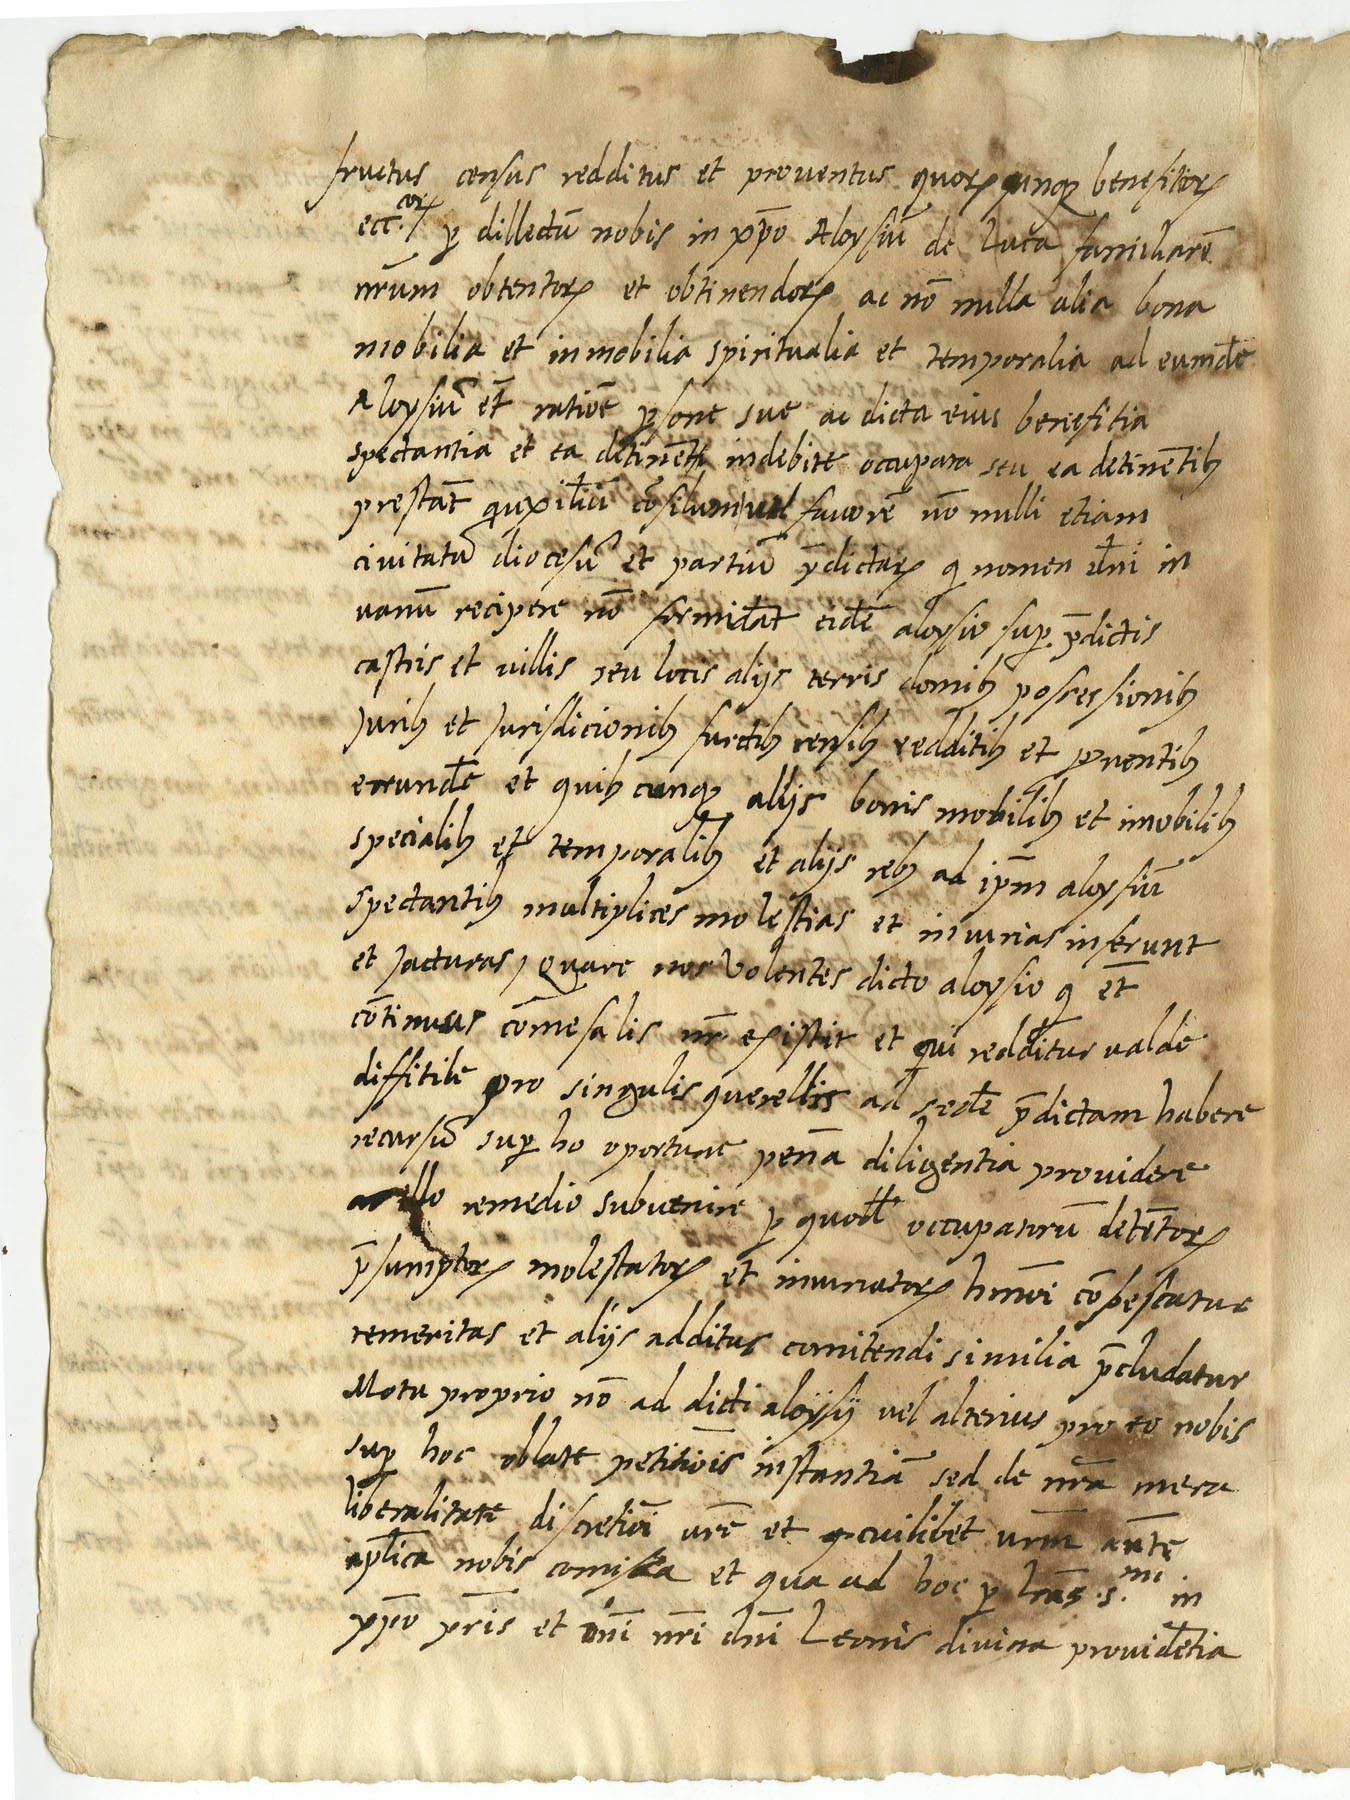 fructus census redditus et prouentus quorꝝcunqꝫ benefitorꝝ
ecc.corꝝ ꝑ dillectū nobis in xp̄o Aloysiū de Luca familiarē
nr̄um obtentorꝝ et obtinendorꝝ ac nō nulla alia bona
mobilia et inmobilia spiritualia et temporalia ad eumdē
Aloysiū et̄ ratiōe ꝑsone sue ac dicta eius benefitia
spectantia et ea detinent indebite occupata seu ea detinētibꝫ
prestāt auxiliū cōsilium uel fauorē nō nulli etiam
ciuitatū diocesū et partiū p̄dictarꝝ q nomen dn̄i in
uanum recipere nō formidāt eidē aloysio sup p̄dictis
castris et uillis seu locis alijs terris domibꝫ possessionibꝫ
Juribꝫ et Jurisdicionibꝫ fructibꝫ censibꝫ redditibꝫ et ꝓuentibꝫ
eorundē et quibꝫcunqꝫ allijs bonis mobilibꝫ et īmobilibꝫ
specialibꝫ et temporalibꝫ et alijs rebꝫ ad ip̄m aloysiū
spectantibꝫ multiplices molestias et iniurias inferunt
et Jacturas, Quare nos Volentes dicto aloysio q et̄
cōtinuus cōmesalis nr̄ existit et qui redditur ualde
diffitile pro singulis querellis ad sedē p̄dictam habere
recursū sup ho oportune penā diligentia prouidere
ac illo remedio subuenire ꝑ quod occupatorū detētorꝝ
p̄sumptorꝝ molestatorꝝ et iniuriatorꝝ hmōi cōpescatur
temeritas et alijs additus comitendi similia p̄cludatur
Motu proprio nō ad dicti aloysij uel alterius pro eo nobis
sup hoc oblate petitiōis instantiā sed de nr̄a mera
liberalitate discretiōi ur̄e et cuilibet ur̄m aūte
apl̄ica nobis comissa et qua ad hoc ꝑ lr̄as s.mi in
xp̄o pr̄is et dn̄i nr̄i dn̄i Leonis diuina prouidētia